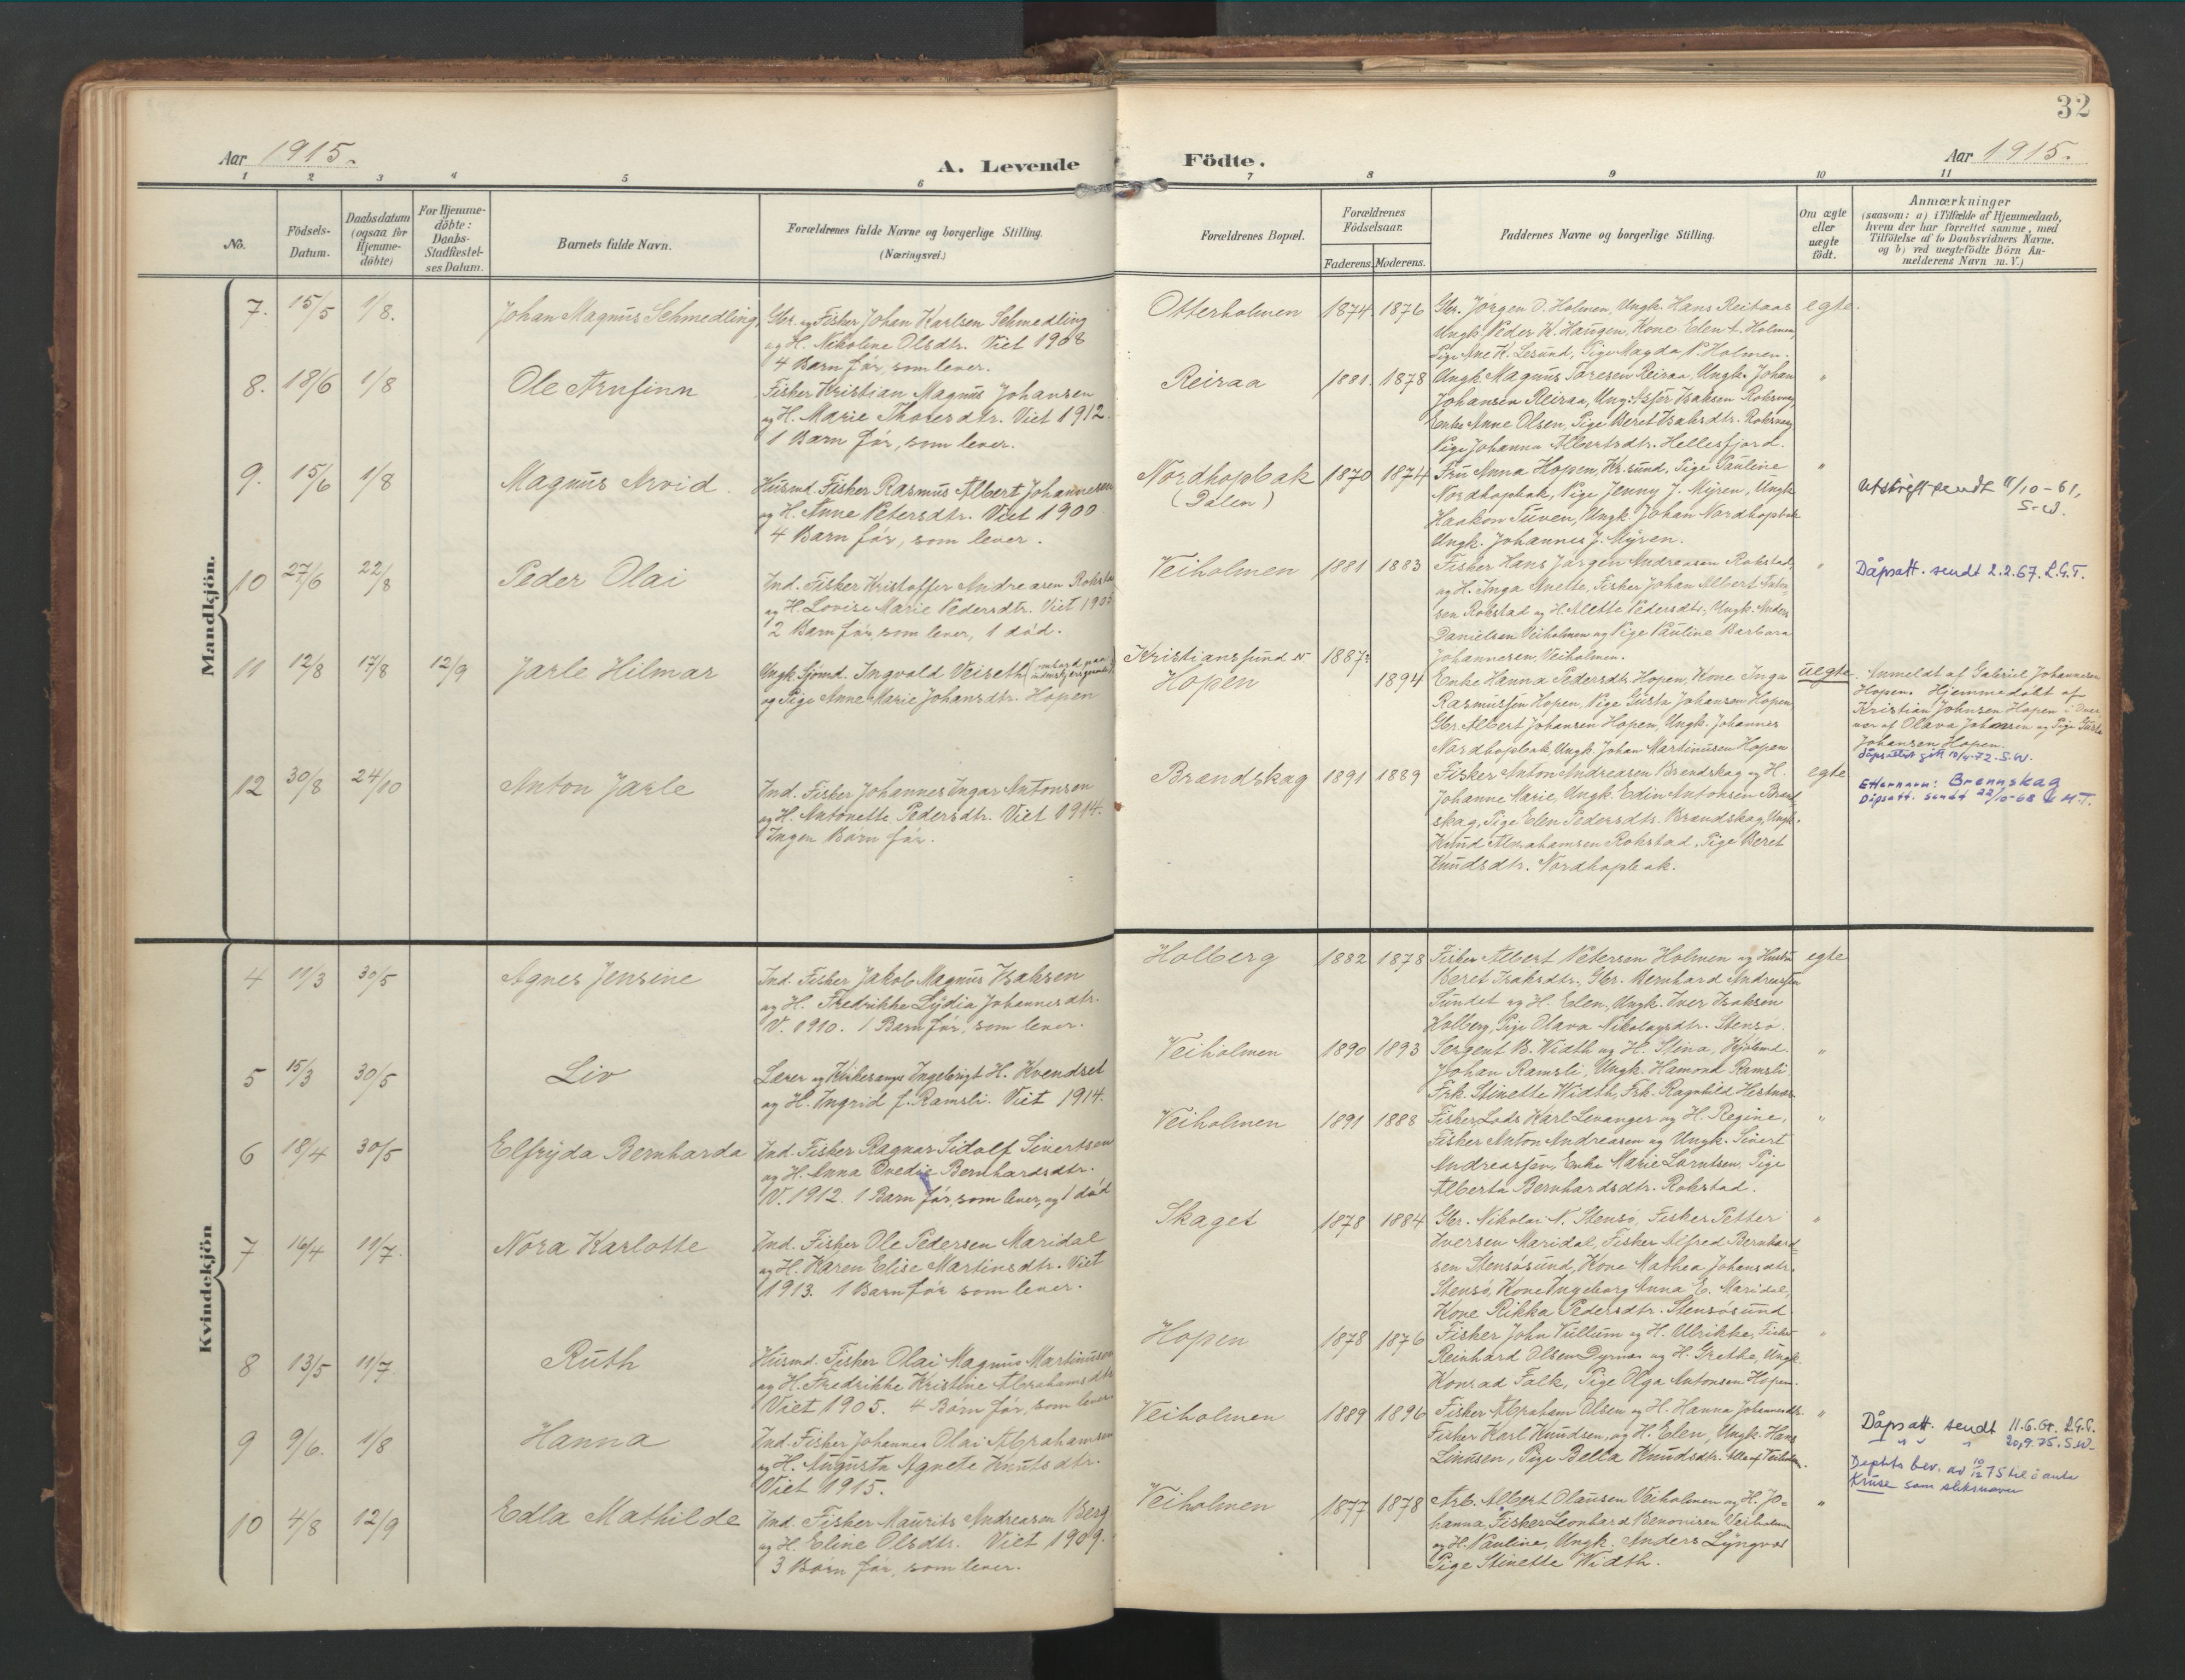 32
Aar 1915.
A. Levende
Födte.
Aar 1915.
1 2 3 4 5 6 7 8 9 10 11
No.
Födsels-
Datum.
Daabsdatum
(ogsaa for
Hjemme-
döbte)
For Hjemme-
döbte:
Daabs-
Stadfæstel-
ses Datum.
Barnets fulde Navn.
Forældrenes fulde Navne og borgerlige Stilling.
(Næringsvei.)
Forældrenes Bopæl.
Forældrenes
Födselsaar.
Faderens. Moderens.
Faddernes Navne og borgerlige Stilling.
Om ægte
eller
uægte
födt.
Anmærkninger
(saasom: a) i Tilfælde af Hjemmedaab,
hvem der har forrettet samme, med
Tilföielse af to Daabsvidners Navne,
og b) ved uægtefödte Börn An-
melderens Navn m. V.)
Mandkjön.
7. 15/5 1/8. Johan Magnus Schmedling
Gbr. og Fisker Johan Karlsen Schmedling
og H. Nikoline Olsdtr. Viet 1908
4 Barn før, som lever.
Otterholmen 1874 1876
Gbr. Jørgen O. Holmen, Ungk. Hans Reitaas
Ungk. Peder K. Haugen, Kone Elen L. Holmen,
Pige Ane K. Lesund, Pige Magda P. Holmen.
egte.
8. 18/6 1/8 Ole Arnfinn
Fisker Kristian Magnus Johansen
og H. Marie Thoresdtr. Viet 1912.
1 Barn før, som lever.
Reiraa 1881 1878
Ungk. Magnus Toresen Reiraa, Ungk. Johan
Johansen Reiraa, Ung. Asfer Isaksen Roksvaag,
Enke Anne Olsen, Pige Beret Isaksdtr. Roksvaag
Pige Johanna Albertsdtr. Hellesfjord.
"
9. 15/6 1/8 Magnus Arvid.
Husmd. Fisker Rasmus Albert Johannesen
og H. Anne Petersdtr. Viet 1900
4 Barn før, som lever.
Nordhopbak
(Dalen)
1870 1874
Fru Anna Hopen, Kr.sund, Pige Pauline
Nordhopbak, Pige Jenny J. Myren, Ungk
Haakon Tuven, Ungk. Johan Nordhopbak
Ungk. Johannes J. Myren.
"
Utskrift sendt 11/10-61,
S.W.
10 27/6 22/8 Peder Olai
Ind. Fisker Kristoffer Andreasen Rokstad
og H. Lovise Marie Pedersdtr. Viet 1905
2 Barn før, som lever, 1 død.
Veiholmen 1881 1883
Fisker Hans Jørgen Andreasen Rokstad,
og H. Inga Anette, Fisker Johan Albert
sen Rokstad og H. Alette Pedersdtr., Ungk. Anders
Danielsen Veiholmen og Pige Pauline Barbara
Johannesen, Veiholmen.
"
Dåpsatt. sendt 2.2.67. L.G.T.
11 12/8 17/8 12/9 Jarle Hilmar
Ungk. Sjømd. Ingvald Veiseth
og Pige Anne Marie Johansdtr. Hopen
Kristianssund N
Hopen
1887
1894
Enke Hanna Pedersdtr. Hopen, Kone Inga
Rasmussen Hopen, Pige Gusta Johansen Hopen
Gbr. Albert Johansen Hopen, Ungk. Johannes
Nordhopbak, Ungk. Johan Martinusen Hopen
uegte.
Anmeldt af Gabriel Johannesen
Hopen. Hjemmedøbt af
Kristian Johnsen Hopen i Over
vær af Olava Johansen og Pige Gusta
Johansen Hopen.
dåpsattest gitt 10/4-72. S.W.
12 30/8 24/10 Anton Jarle
Ind. Fisker Johannes Ingar Antonsen
og H. Antonette Pedersdtr. Viet 1914.
Ingen Børn før.
Brandskag 1891 1889
Fisker Anton Andreasen Brendskag og H.
Johanne Marie, Ungk. Edin Antonsen Brand-
skag, Pige Elen Pedersdtr. Brandskag, Ungk.
Knud Abrahamsen Rokstad, Pige Beret
Knudsdtr. Nordhopbak.
egte
Etternavn: Brennskag
Dåpsatt. sendt 22/10-68 H.T.
Kvindekjön
4 11/3 30/5 Agnes Jensine
Ind. Fisker Jakob Magnus Isaksen
og H. Fredrikke Lydia Johannesdtr.
V. 1910. 1 Barn før, som lever.
Holberg 1882 1878
Fisker Albert Petersen Holmen og Hustru
Beret Isaksdtr., Gbr. Bernhard Andreassen
Sundet og H. Elen, Ungk. Iver Isaksen
Holberg, Pige Olava Nikolaysdtr. Stensø.
egte
5 15/3 30/5 Liv
Lærer og Kirkesanger Ingebrigt H. Kvendset
og H. Ingrid f. Ramsli. Viet 1914.
Veiholmen 1890 1893
Sergent B. Width og H. Stina, Kjøbmd.
Johan Ramsli, Ungk. Hamond Ramsli
Frk. Stinette Width, Frk. Ragnhild Hestnes
"
6 18/4 30/5 Elfryda Bernharda
Ind. Fisker Ragnar Sidolf Sivertsen
og H. Anna Ovedie Bernhardsdtr.
V. 1912. 1 Barn før, som lever, og 1 død
Veiholmen 1891 1888
Fisker, Lods Karl Levanger og H. Regine,
Fisker Anton Andreasen og Ungk. Sivert
Andreassen, Enke Marie Lorntsen, Pige
Alberta Bernhardsdtr. Rokstad.
"
7 16/4 11/7. Nora Karlotte
Ind. Fisker Ole Pedersen Maridal
og H. Karen Elise Martinsdtr. Viet
1913. 1 Barn før som lever.
Skaget 1878 1884
Gbr. Nikolai N. Stensø, Fisker Petter
Iversen Maridal, Fisker Alfred Bernhard-
sen Stensøsund, Kone Mathea Johansdtr.
Stensø, Kone Ingeborg Anna E. Maridal,
Kone Rikka Pedersdtr. Stensøsund.
"
8 13/5 11/7. Ruth
Husmd. Fisker Olai Magnus Martinusen
og H. Fredrikke Kristine Abrahamsdtr
Viet 1905. 4 Børn før, som lever
Hopen 1878 1876
Fisker John Vullum og H. Ulrikke, Fisker
Reinhard Olsen Dyrnes og H. Grethe, Ungk.
Konrad Falk, Pige Olga Antonsen Hopen.
"
9 9/6. 1/8 Hanna
Ind. Fisker Johannes Olai Abrahamsen
og H. Augusta Agnete Knutsdtr.
Viet 1915.
Veiholmen 1889 1896
Fisker Abraham Olsen og H. Hanna Johannesdtr.
Fisker Karl Knudsen, og H. Elen, Ungk. Hans
Linusen, Pige Bella Knudsdtr. alle af Veiholm.
"
Dåpsatt. sendt 11.6.65. L.G.T.
" " " 20/9.75. S.W.
Dephts bev. av 10/12 75 til å anta
Kruse som slektsnavn
10 4/8 12/9 Edla Mathilde
Ind. Fisker Maurits Andreasen Berg
og H. Eline Olsdtr. Viet 1909.
3 Børn før, som lever.
Veiholmen 1877 1878
Arb. Albert Olausen Veiholmen og H. Jo-
hanna, Fisker Leonhard Benonisen Veiholmen
og H. Pauline, Ungk. Anders Lyngvær
Pige Stinette Width.
"